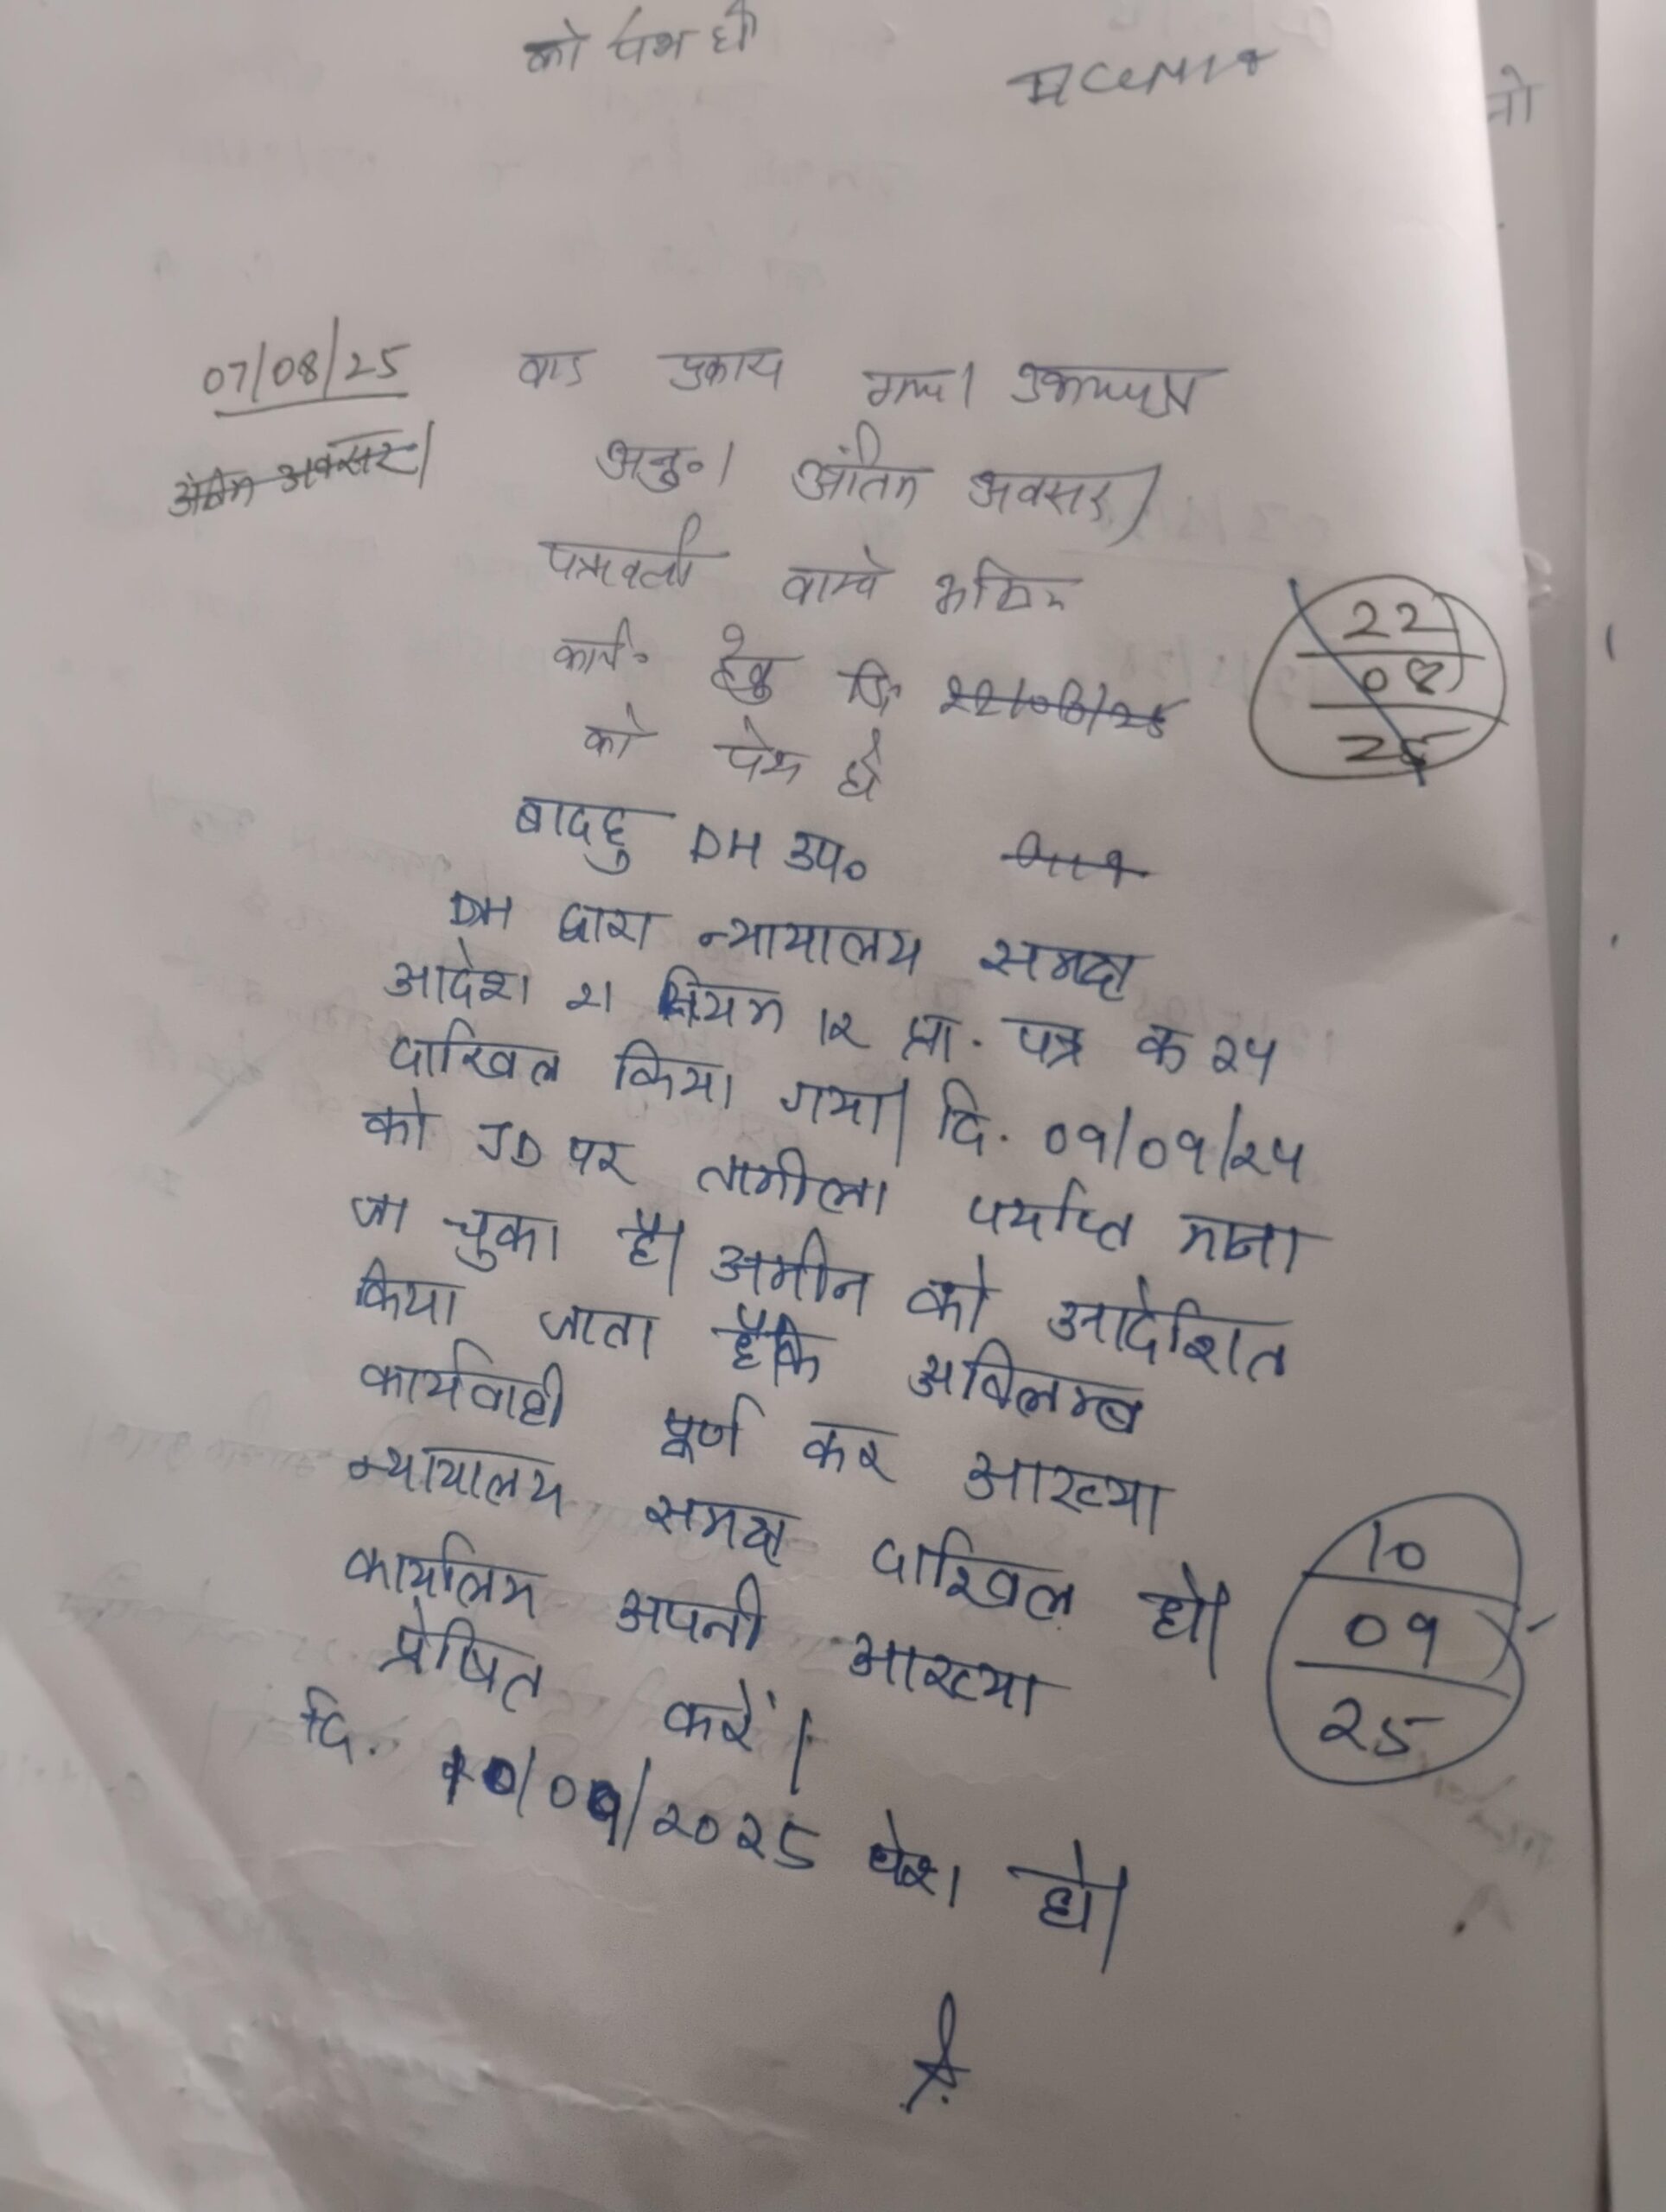 को पेश हो
07/08/25 वाद पुकारा गया। उभयपक्ष
अंतिम अवसर। अनु०। अंतिम अवसर।
पत्रावली वास्ते अग्रिम
कार्य० हेतु दि 22/08/25
को पेश हो
22
08
25
बादहु DH उप०
DH द्वारा न्यायालय समक्ष
आदेश २१ नियम १२ प्रा. पत्र क २५
दाखिल किया गया। दि. ०९/०९/२५
को JD पर तामीला पर्याप्त माना
जा चुका है। अमीन को आदेशित
किया जाता है कि अविलम्ब
कार्यवाही पूर्ण कर आख्या
न्यायालय समक्ष दाखिल हो।
कार्यालय अपनी आख्या
प्रेषित करें।
10
09
25
दि. 10/09/2025 पेश हो।